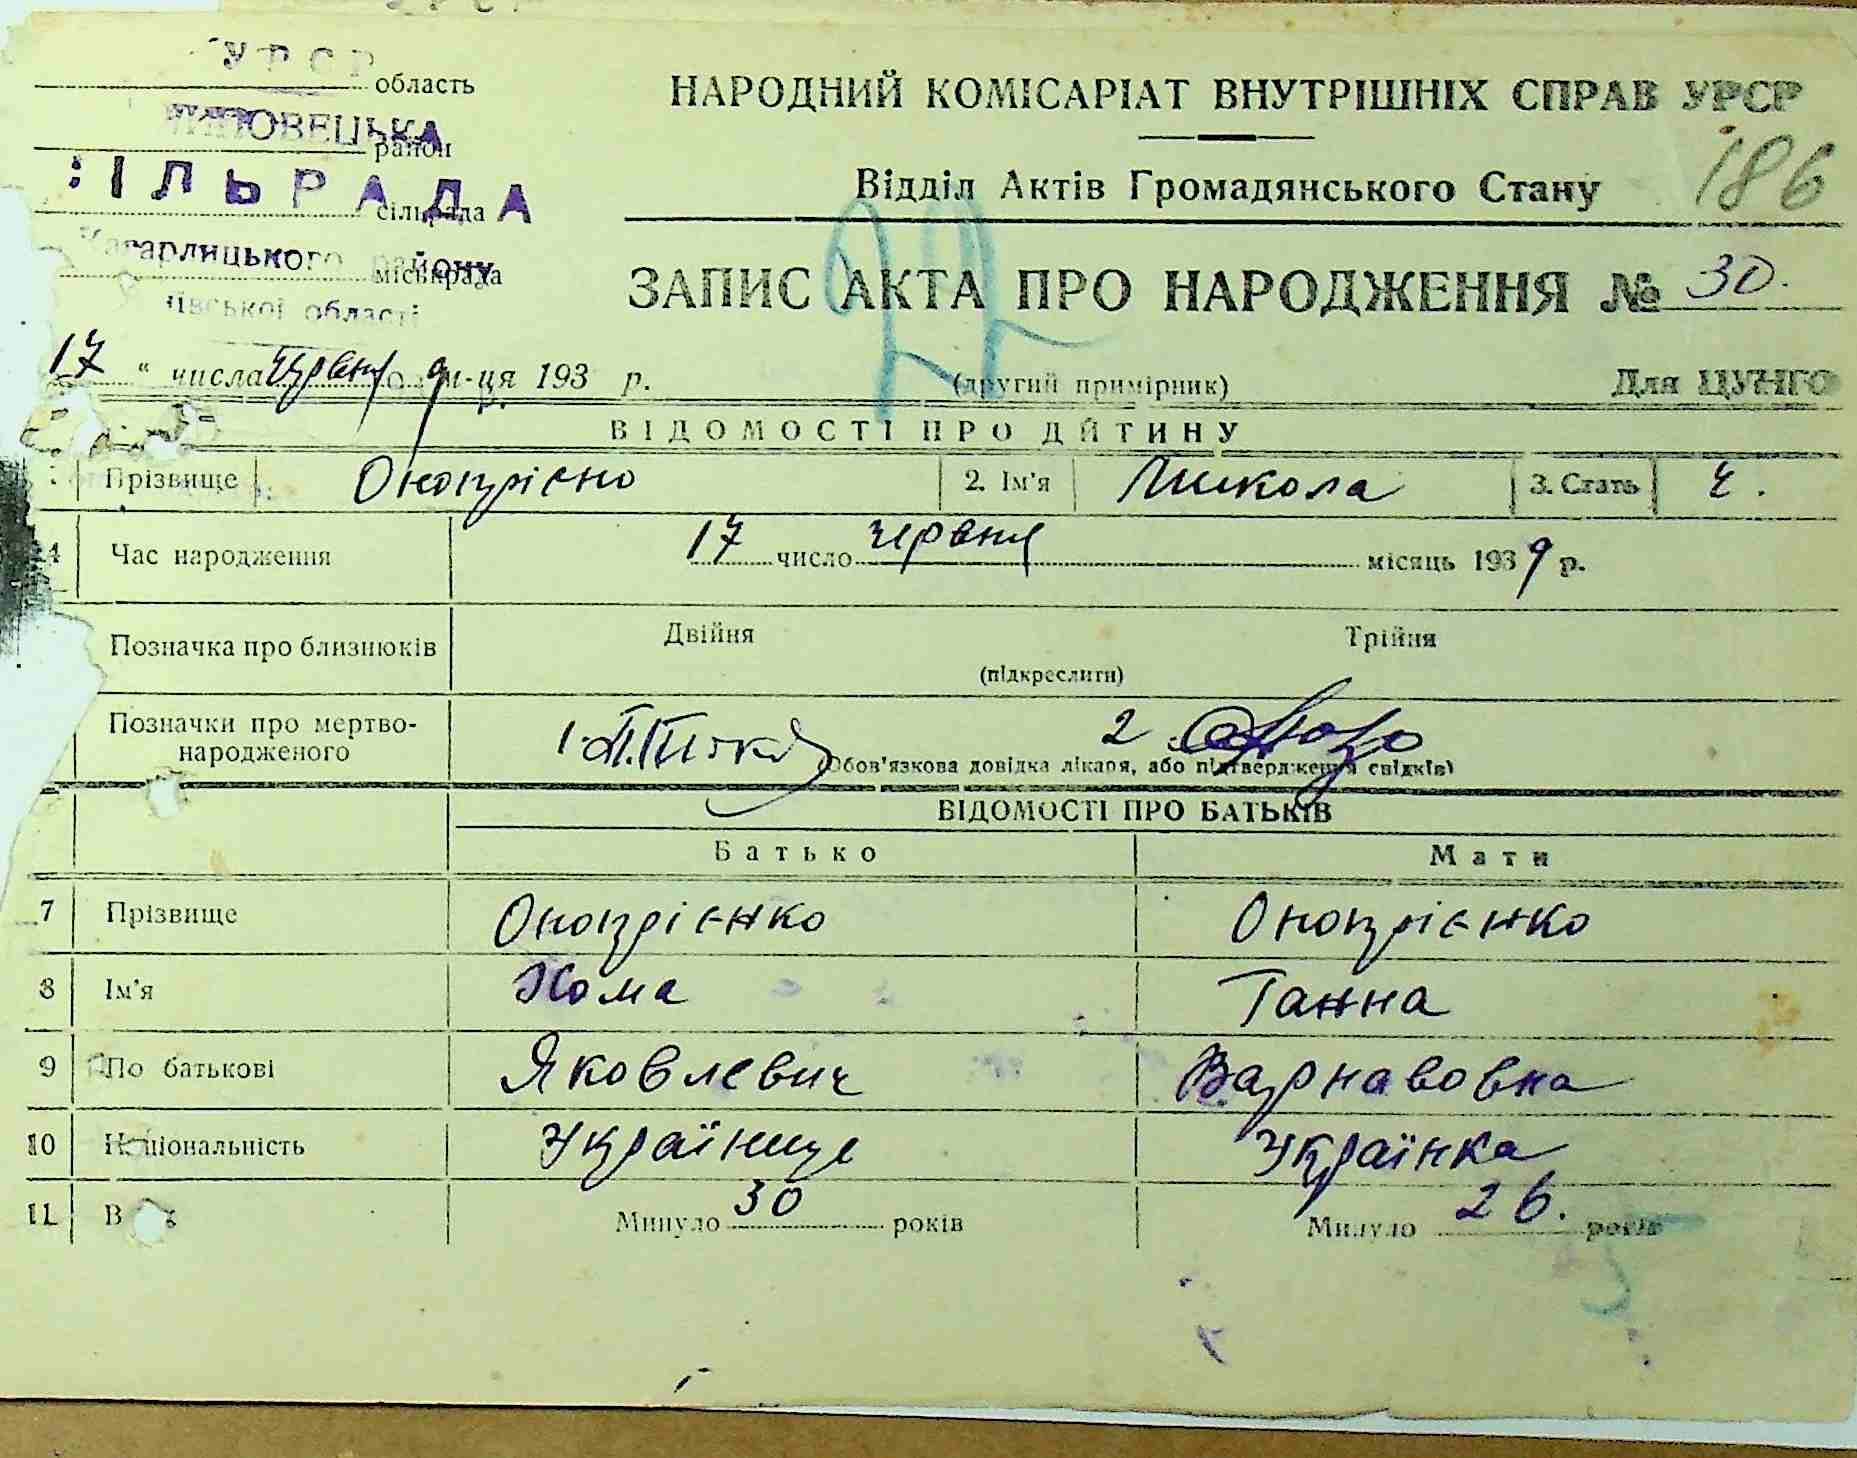 УРСР
область
ОВЕЦЬКА
район
ІЛЬРАДА
сільрада
Кагарлицького району
міськрада
ївської області
НАРОДНИЙ КОМІСАРІАТ ВНУТРІШНІХ СПРАВ УРСР
186
Відділ Актів Громадянського Стану
22
ЗАПИС АКТА ПРО НАРОДЖЕННЯ № 30.
17 " числа червня м-ця 1939 р.
(другий примірник)
Для ЦУНГО
ВІДОМОСТІ ПРО ДИТИНУ
Прізвище Онопрієно 2. Ім'я Микола 3. Стать ч.
4 Час народження 17 число червня місяць 1939 р.
Позначка про близнюків Двійня Трійня
(підкреслити)
Позначки про мертво-
народженого 1. 2.
(Обов'язкова довідка лікаря, або підтвердження свідків)
ВІДОМОСТІ ПРО БАТЬКІВ
Батько Мати
7 Прізвище Онопрієнко Онопрієнко
8 Ім'я Хома Ганна
9 По батькові Яковлевич Варнавовна
10 Національність Українець Українка
11 В Минуло 30 років Минуло 26. років